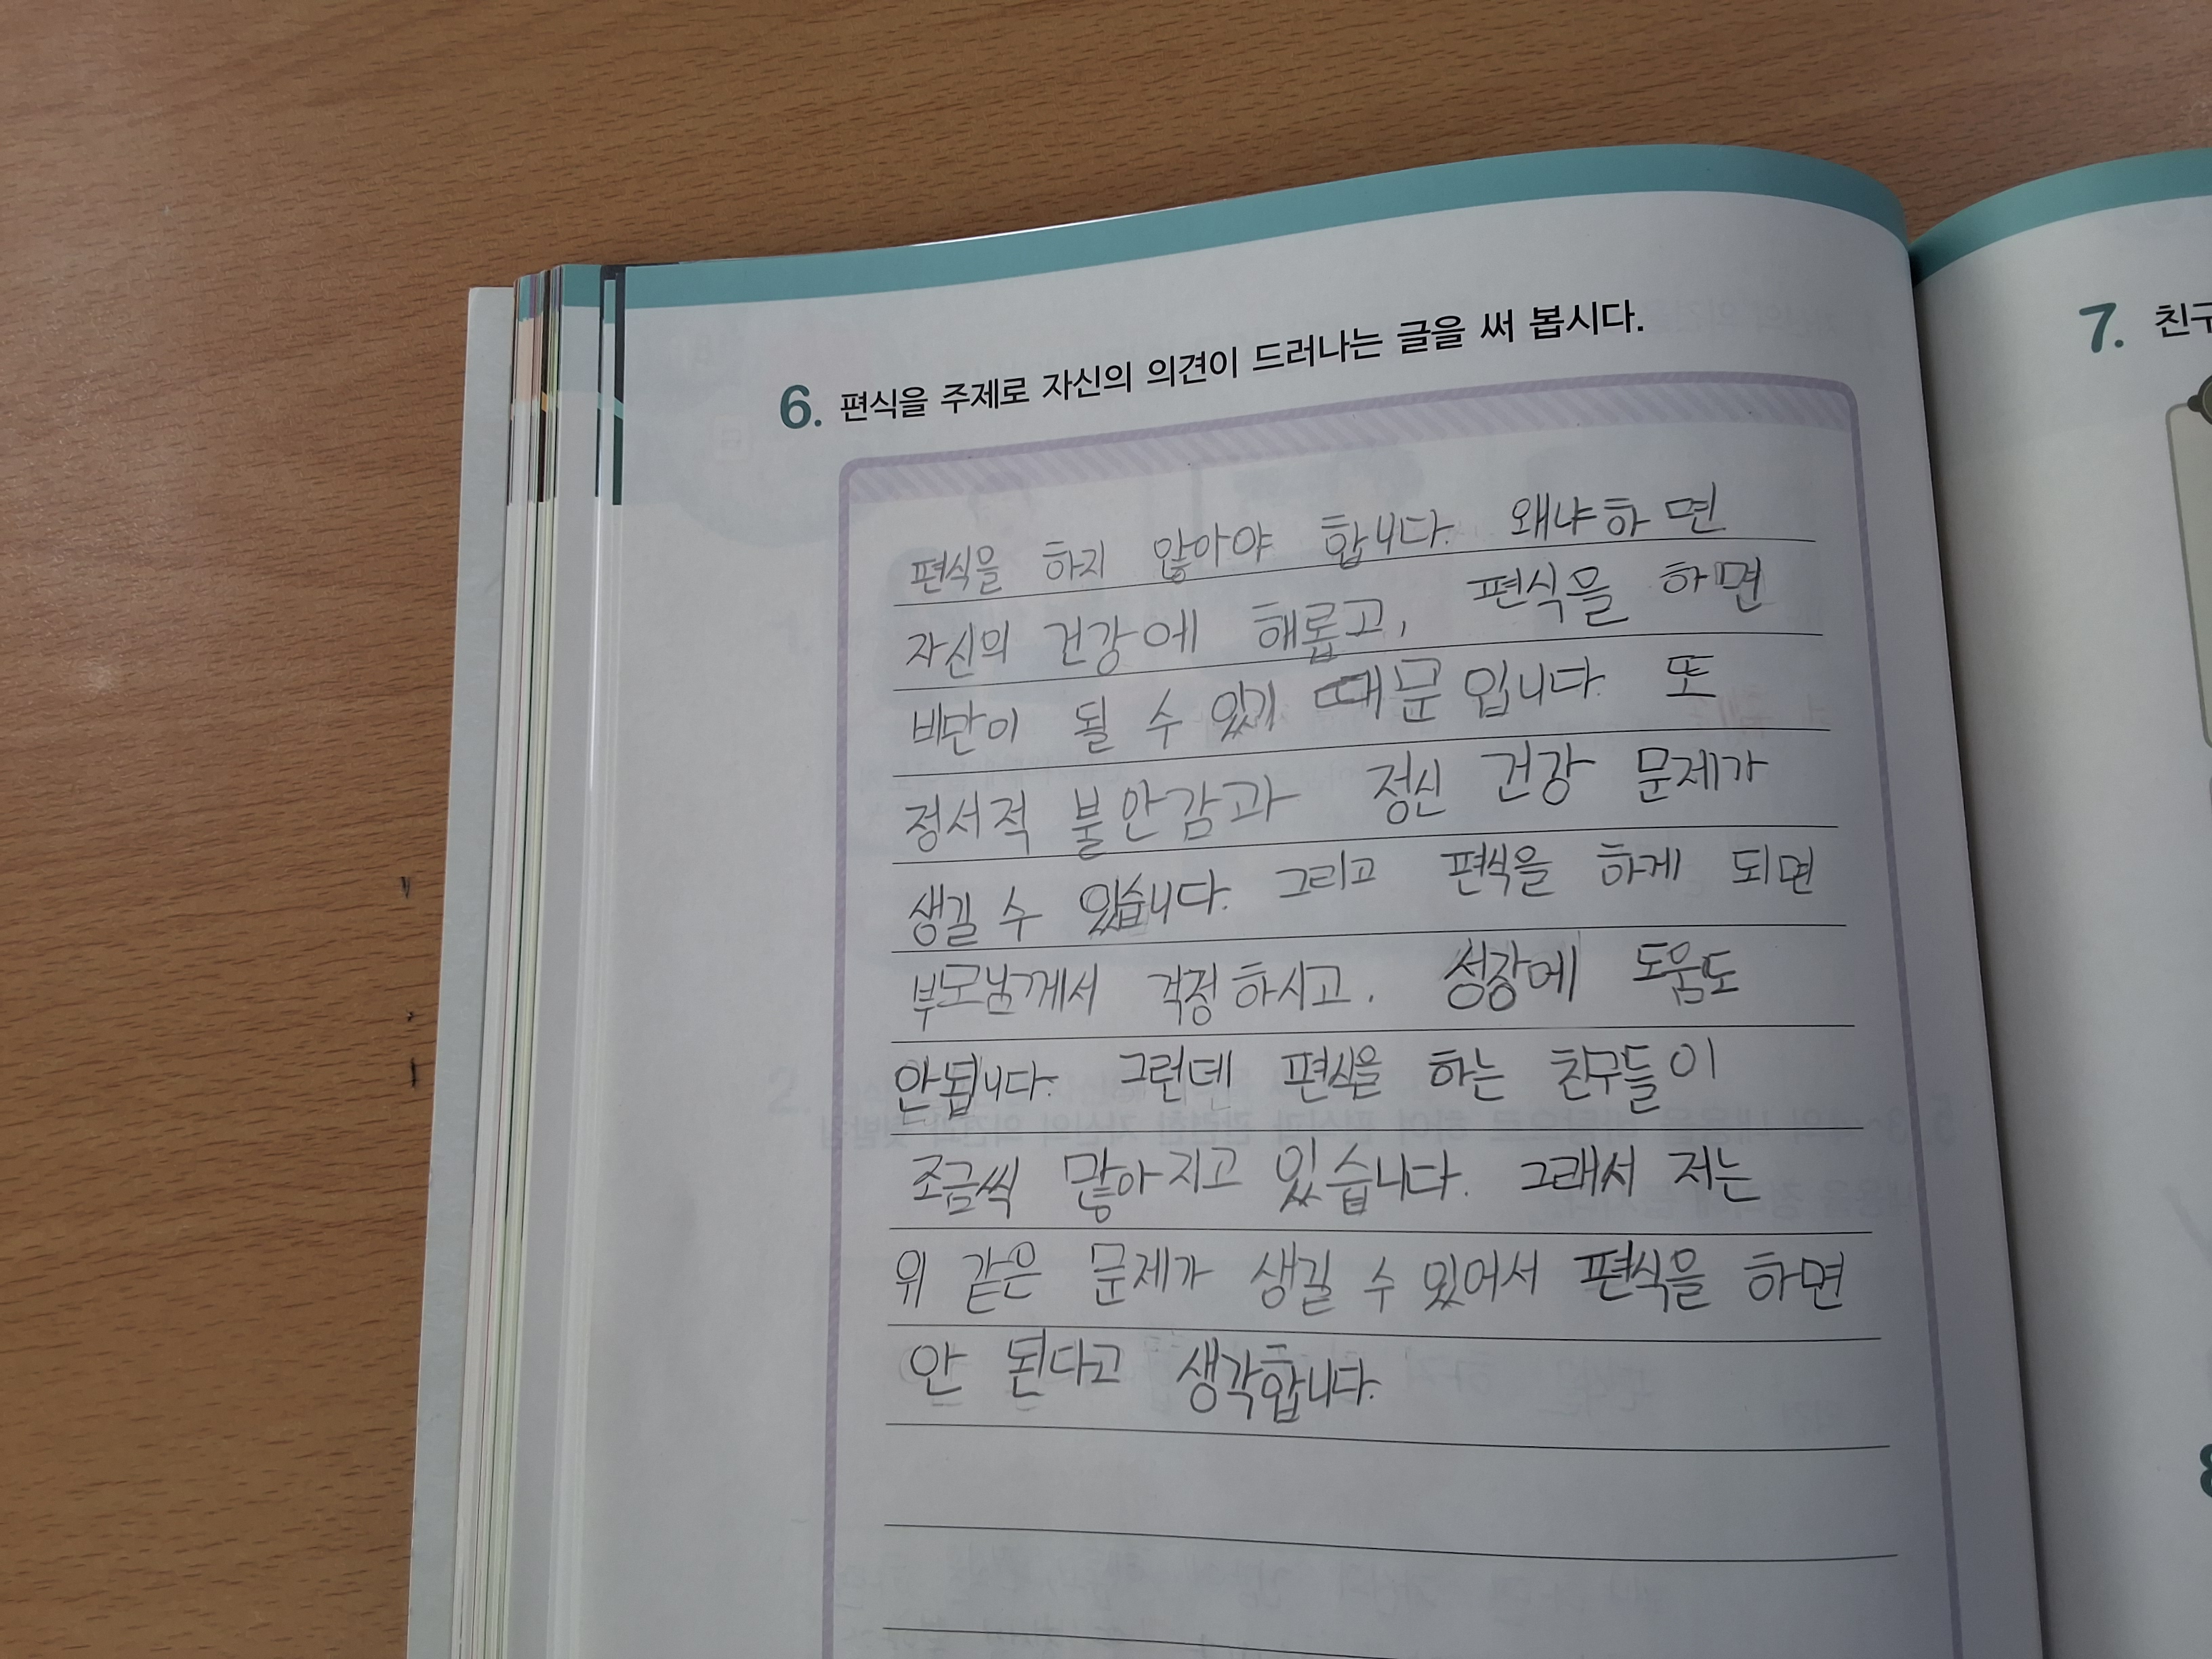 6. 편식을 주제로 자신의 의견이 드러나는 글을 써 봅시다.
편식을 하지 않아야 합니다. 왜냐하면
자신의 건강에 해롭고, 편식을 하면
비만이 될 수 있기 때문입니다. 또
정서적 불안감과 정신 건강 문제가
생길 수 있습니다. 그리고 편식을 하게 되면
부모님께서 걱정하시고. 성장에 도움도
안됩니다. 그런데 편식을 하는 친구들이
조금씩 많아지고 있습니다. 그래서 저는
위 같은 문제가 생길 수 있어서 편식을 하면
안 된다고 생각합니다.
7. 친구